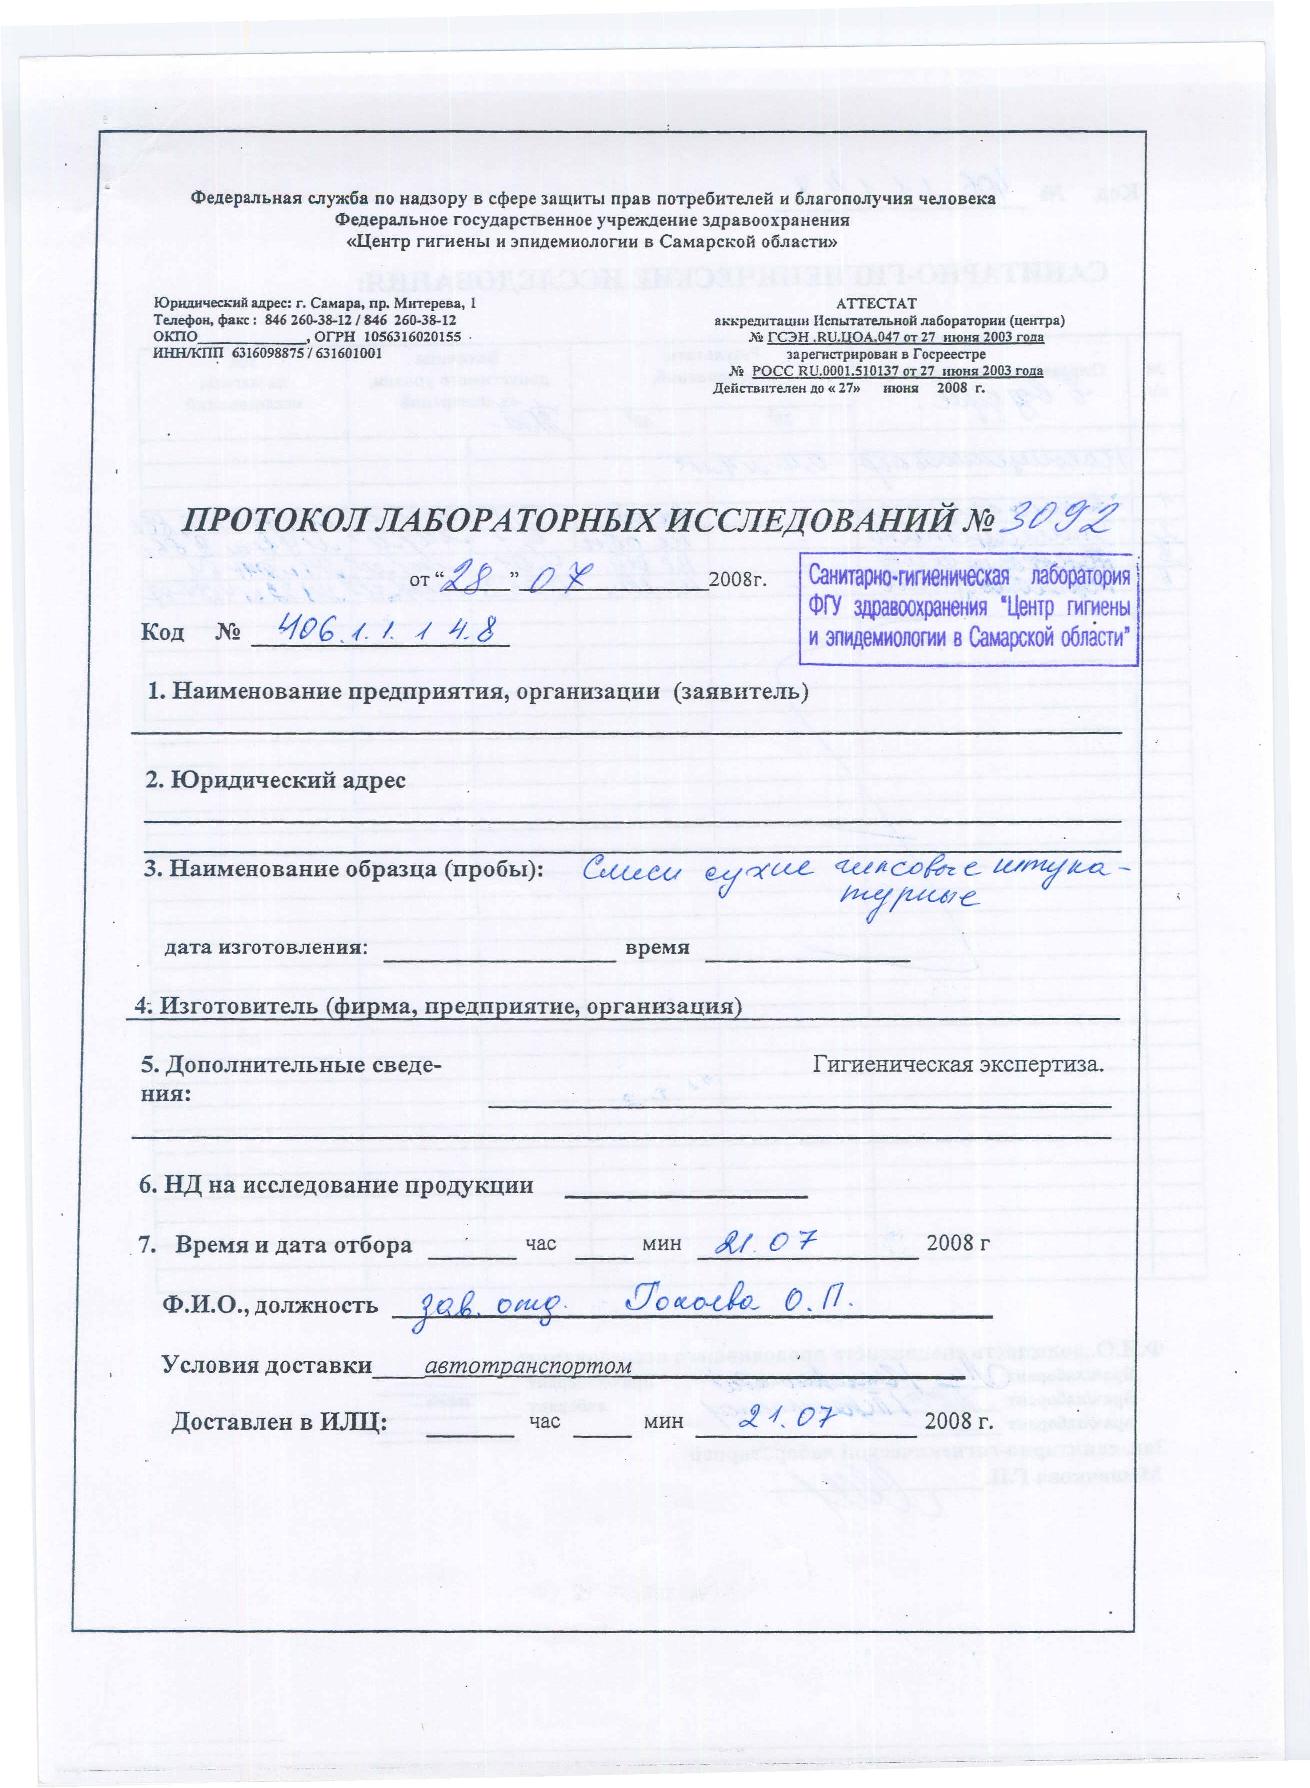 Федеральная служба по надзору в сфере защиты прав потребителей и благополучия человека
Федеральное государственное учреждение здравоохранения
«Центр гигиены и эпидемиологии в Самарской области»
Юридический адрес: г. Самара, пр. Митерева, 1
Телефон, факс : 846 260-38-12 / 846 260-38-12
ОКПО________________, ОГРН 1056316020155
ИНН/КПП 6316098875 / 631601001
АТТЕСТАТ
аккредитации Испытательной лаборатории (центра)
№ ГСЭН .RU.ЦОА.047 от 27 июня 2003 года
зарегистрирован в Госреестре
№ РОСС RU.0001.510137 от 27 июня 2003 года
Действителен до « 27» июня 2008 г.
ПРОТОКОЛ ЛАБОРАТОРНЫХ ИССЛЕДОВАНИЙ № 3092
от “28” 07 2008г.
Санитарно-гигиеническая лаборатория
ФГУ здравоохранения "Центр гигиены
и эпидемиологии в Самарской области"
Код № 406.1.1.1 4.8
1. Наименование предприятия, организации (заявитель)
2. Юридический адрес
3. Наименование образца (пробы): Смеси сухие гипсовые штука-
турные
дата изготовления: время
4. Изготовитель (фирма, предприятие, организация)
5. Дополнительные сведе- Гигиеническая экспертиза.
ния:
6. НД на исследование продукции
7. Время и дата отбора час мин 21.07 2008 г
Ф.И.О., должность зав. отд. О.П.
Условия доставки автотранспортом
Доставлен в ИЛЦ: час мин 21.07 2008 г.